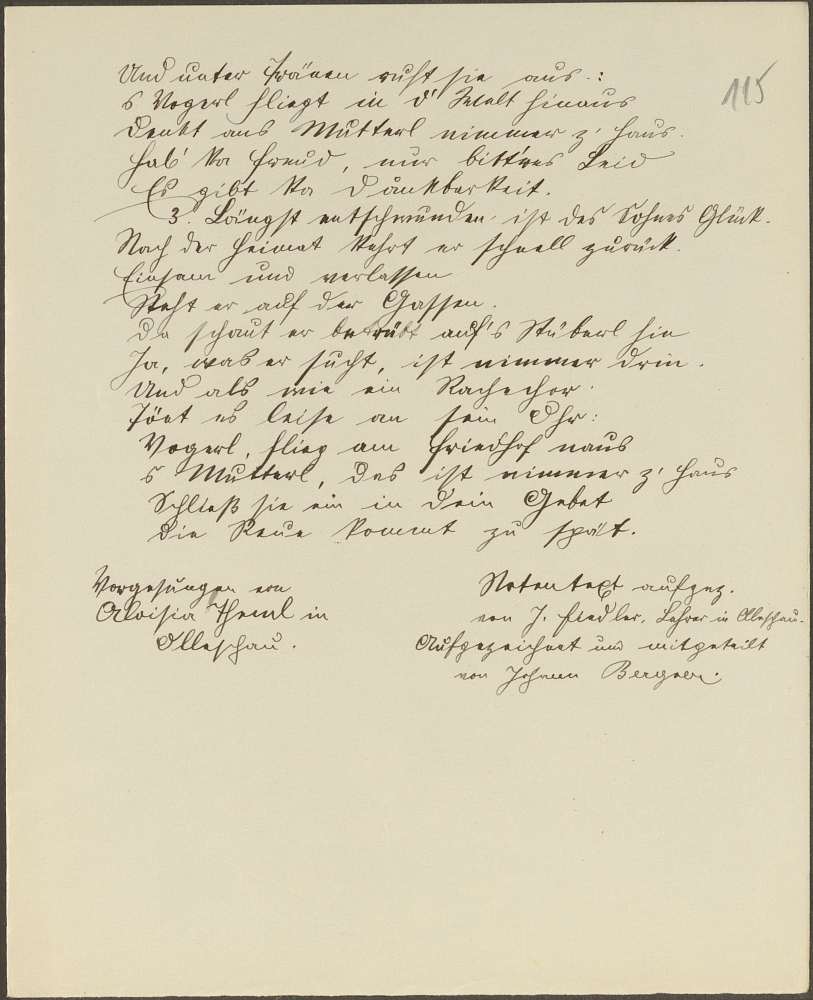 115
Und unter Tränen ruft sie aus.:
s Vogerl fliegt in d' Welt hinaus
Denkt ans Mutterl nimmer z' Haus.
Hab' ka Freud, nur bittres Leid
Es gibt ka Dankbarkeit.
3. Längst entschwunden ist des Sohnes Glück.
Nach der Heimat kehrt er schnell zurück.
Einsam und verlassen
Steht er auf der Gassen.
Da schaut er betrübt auf's Stüberl hin
Ja, was er sucht, ist nimmer drin.
Und als wie ein Rachechor
Tönt es leise an sein Ohr:
Vogerl, flieg am Friedhof naus
s Mutterl, das ist nimmer z' Haus
Schließ sie ein in Dein Gebet
Die Reue kommt zu spät.
Vorgesungen von
Aloisia in
Olleschau.
Notentext aufgez.
von J. Fiedler, Lehrer in Olleschau.
Aufgezeichnet und mitgeteilt
von Johann Berger.